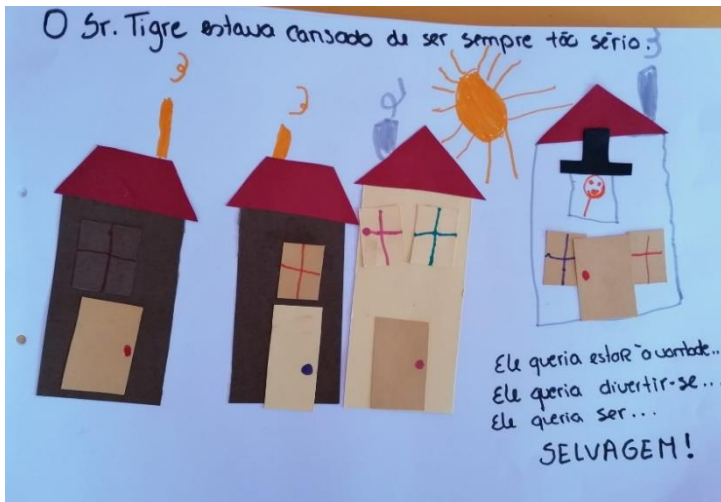 O Sr. Tigre estava cansado de ser sempre tão sério.
Ele queria estaR à vontade...
Ele queria divertir-se...
Ele queria ser...
SELVAGEM!